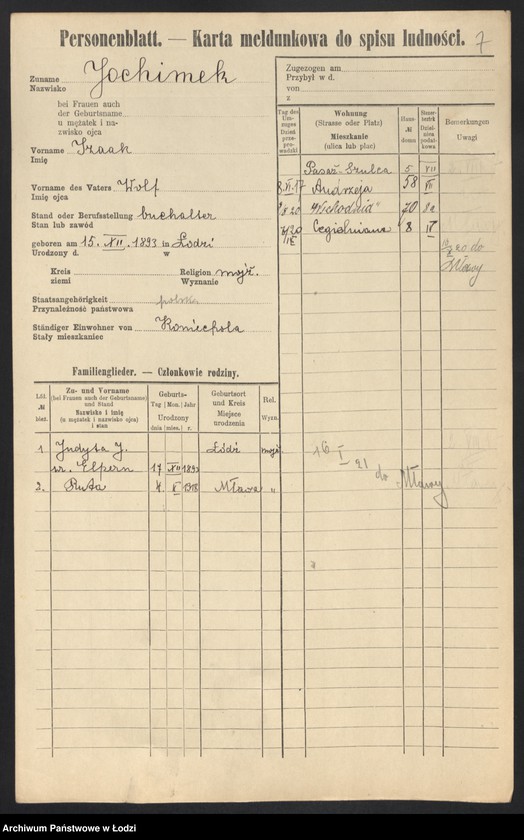 Personenblatt. — Karta meldunkowa do spisu ludności. 7
Zuname
Nazwisko Jochimek
bei Frauen auch
der Geburtsname
u mężatek i na-
zwisko ojca
Vorname Izaak
Imię
Vorname des Vaters Wolf
Imię ojca
Stand oder Berufsstellung buchalter
Stan lub zawód
geboren am 15. XII. 1893 in Łodzi
Urodzony d. w
Kreis Religion mojż.
ziemi Wyznanie
Staatsangehörigkeit polska
Przynależność państwowa
Ständiger Einwohner von Koniecpola
Stały mieszkaniec
Zugezogen am
Przybył w d.
von
z
Tag des Um-
zuges
Dzień
prze-
prowadzki
Wohnung
(Strasse oder Platz)
Mieszkanie
(ulica lub plac)
Haus-
№
domu
Steuer-
bezirk
Dziel-
nica
podat-
kowa
Bemerkungen
Uwagi
Pasaż-Szulca 5 VII
8.VI.17 Andrzeja 58 VII
Wschodnia 70
Cegielniana 8 IV
20 do
Mławy
Familienglieder. — Członkowie rodziny.
Lfd.
№
bież.
Zu- und Vorname
(bei Frauen auch der Geburtsname)
und Stand
Nazwisko i imię
(u mężatek i nazwisko ojca)
i stan
Geburts-
Tag Mon. Jahr
Urodzony
dnia mies. r.
Geburtsort
und Kreis
Miejsce
urodzenia
Rel.
Wyzn.
1 Judyta J. Łódź mojż
ur. Elpern 17 XII 1893
2. Ruta 4 V 1918 Mława "
16 I 21 do Mławy
Archiwum Państwowe w Łodzi